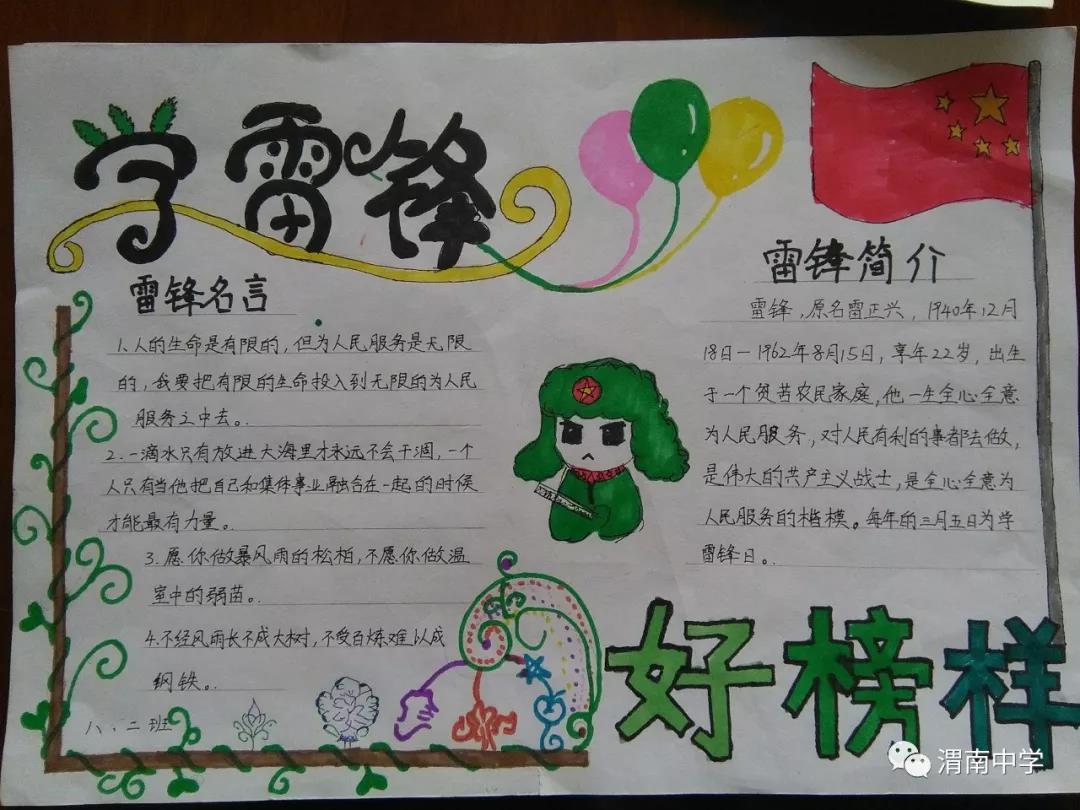 学雷锋
雷锋名言
1.人的生命是有限的,但为人民服务是无限
的,我要把有限的生命投入到无限的为人民
服务之中去。
2.一滴水只有放进大海里才永远不会干涸,一个
人只有当他把自己和集体事业融合在一起的时候
才能最有力量。
3.愿你做暴风雨的松柏,不愿你做温
室中的弱苗。
4.不经风雨长不成大树,不受百炼难以成
钢铁。
八.二班
雷锋简介
雷锋,原名雷正兴,1940年12月
18日—1962年8月15日,享年22岁,出生
于一个贫苦农民家庭,他一生全心全意
为人民服务,对人民有利的事都去做,
是伟大的共产主义战士,是全心全意为
人民服务的楷模。每年的三月五日为学
雷锋日。
好榜样
渭南中学